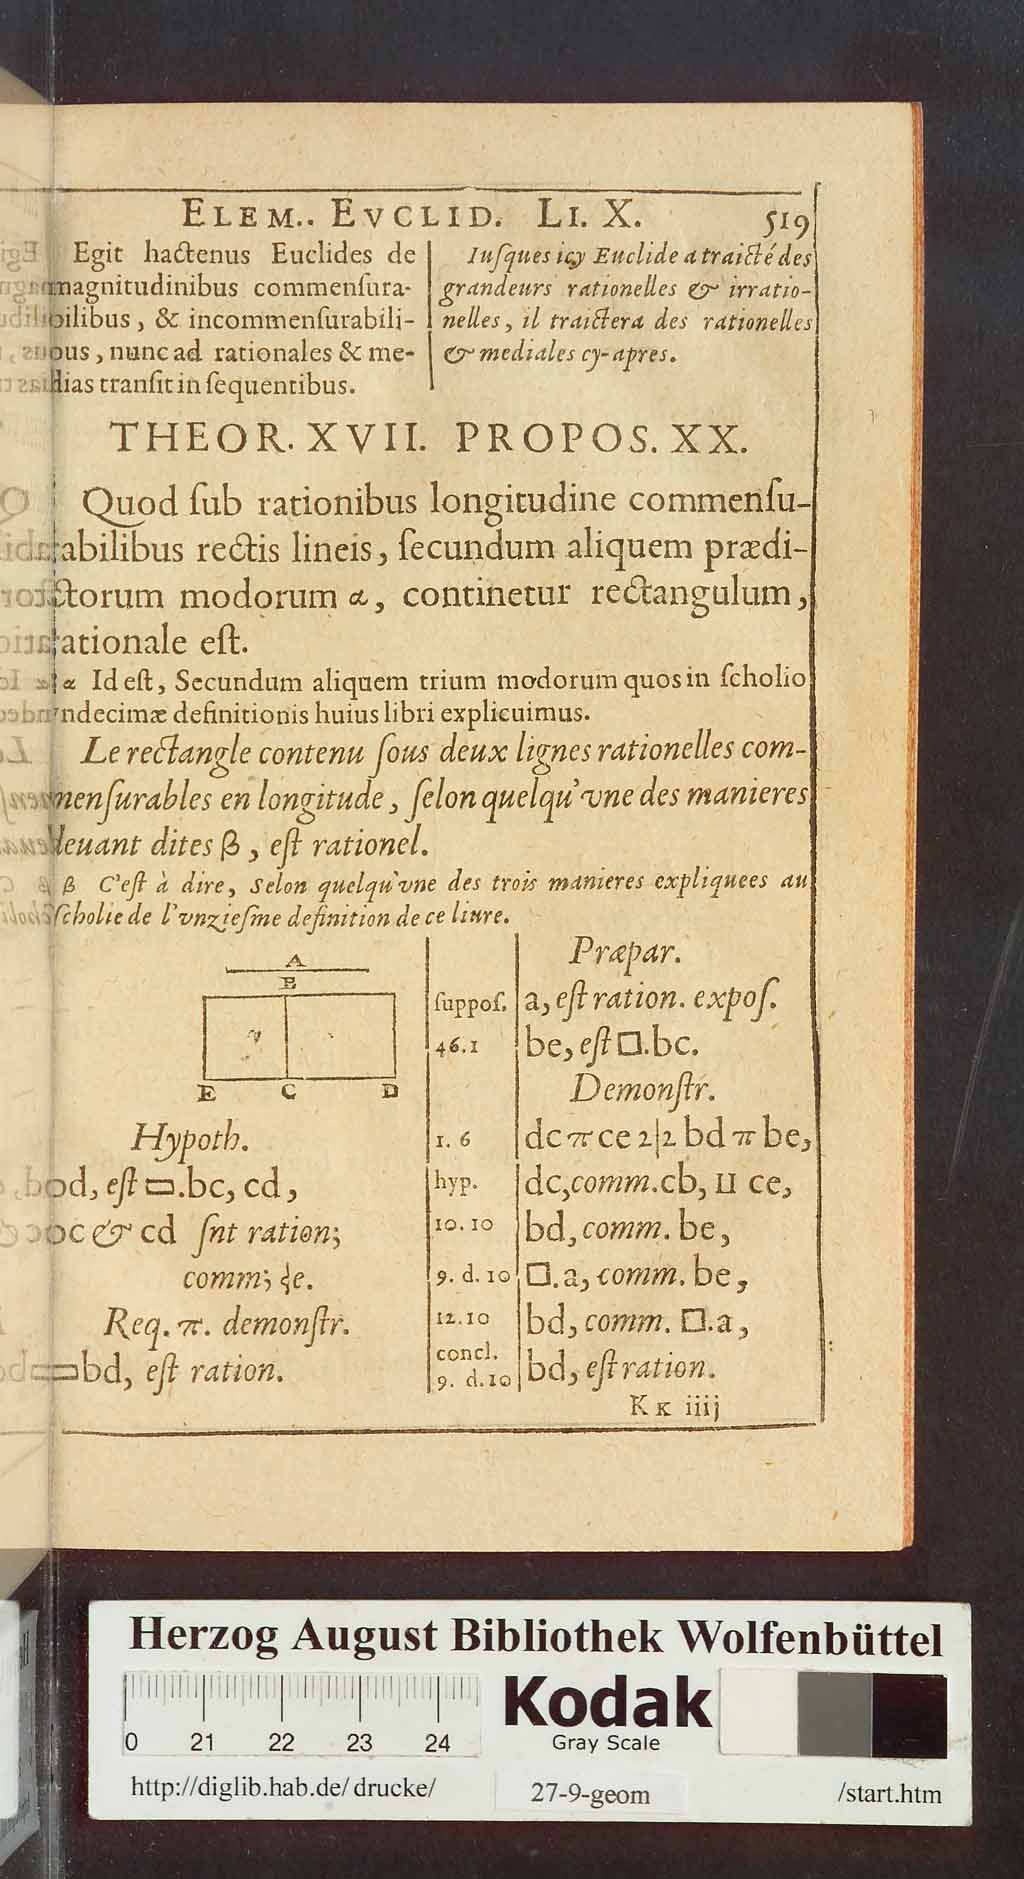 ELEM.. EVCLID. LI. X. 519
Egit hactenus Euclides de
magnitudinibus commensura-
bilibus, & incommensurabili-
bus, nunc ad rationales & me-
dias transit in sequentibus.
Iusques icy Euclide a traicté des
grandeurs rationelles & irratio-
nelles, il traictera des rationelles
& mediales cy-apres.
THEOR. XVII. PROPOS. XX.
Quod sub rationibus longitudine commensu-
rabilibus rectis lineis, secundum aliquem prædi-
ctorum modorum α, continetur rectangulum,
rationale est.
α Id est, Secundum aliquem trium modorum quos in scholio
undecimæ definitionis huius libri explicuimus.
Le rectangle contenu sous deux lignes rationelles com-
mensurables en longitude, selon quelqu'vne des manieres
deuant dites β, est rationel.
β C'est à dire, Selon quelqu'vne des trois manieres expliquees au
scholie de l'vnziesme definition de ce liure.
A
B
E C D
Hypoth.
bd, est ▭.bc, cd,
bc & cd snt ration;
comm; ʒe.
Req. π. demonstr.
▭bd, est ration.
Præpar.
suppos. a, est ration. expos.
46.1 be, est □.bc.
Demonstr.
1. 6 dc π ce 2|2 bd π be,
hyp. dc, comm. cb, ⊔ ce,
10. 10 bd, comm. be,
9. d. 10 □.a, comm. be,
12.10 bd, comm. □.a,
concl.
9. d.10 bd, est ration.
KK iiij
Herzog August Bibliothek Wolfenbüttel
0 21 22 23 24
Kodak
Gray Scale
http://diglib.hab.de/drucke/ 27-9-geom /start.htm